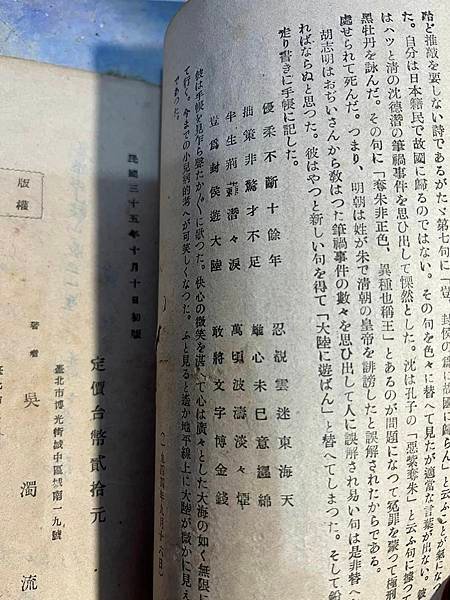 跆と推敲を要しない詩であるがたゞ第七句に「豈、封侯の爲に故國に歸らん」と云ふことが氣にな
た。自分は日本籍民で故國に歸るのではない。その句を色々に替へて見たが適當な言葉が出ない。彼
はハッと淸の沈德潛の筆禍事件を思ひ出して慄然とした。沈は孔子の「惡紫奪朱」と云ふ句に據つて
黑牡丹を詠んだ。その句に「奪朱非正色、異種也稱王」とあるのが問題になつて冤罪を蒙つて極刑
處せられて死んだ。つまり、明朝は姓が朱で淸朝の皇帝を誹謗したと誤解されたからである。
胡志明はおぢいさんから敎はつた筆禍事件の數々を思ひ出して人に誤解され易い句は是非替へ
ればならぬと思つた。彼はやつと新しい句を得て「大陸に遊ばん」と替へてしまつた。そして鉛
走り書きに手帳に記した。
優柔不斷十餘年 忍說雲迷東海天
拙策非驁才不足 雄心未已意纒綿
半生荊蕀潛々淚 萬頃波濤淡々煙
豈爲封侯遊大陸 敢將文字博金錢
彼は手帳を見乍ら聲たかく歌つた。快心の微笑を湛へて心は廣々とした大海の如く無限に
て行く。今までの小兒病的考へが可笑しくなつた。ふと見ると遙か地平線上に大陸が微かに見え
であつた。
(一九四四年九月十六日)
民國三十五年十月十日初版
版權
定價台幣貳拾元
臺北市博光街城中區城南一九號
著者 吳濁流